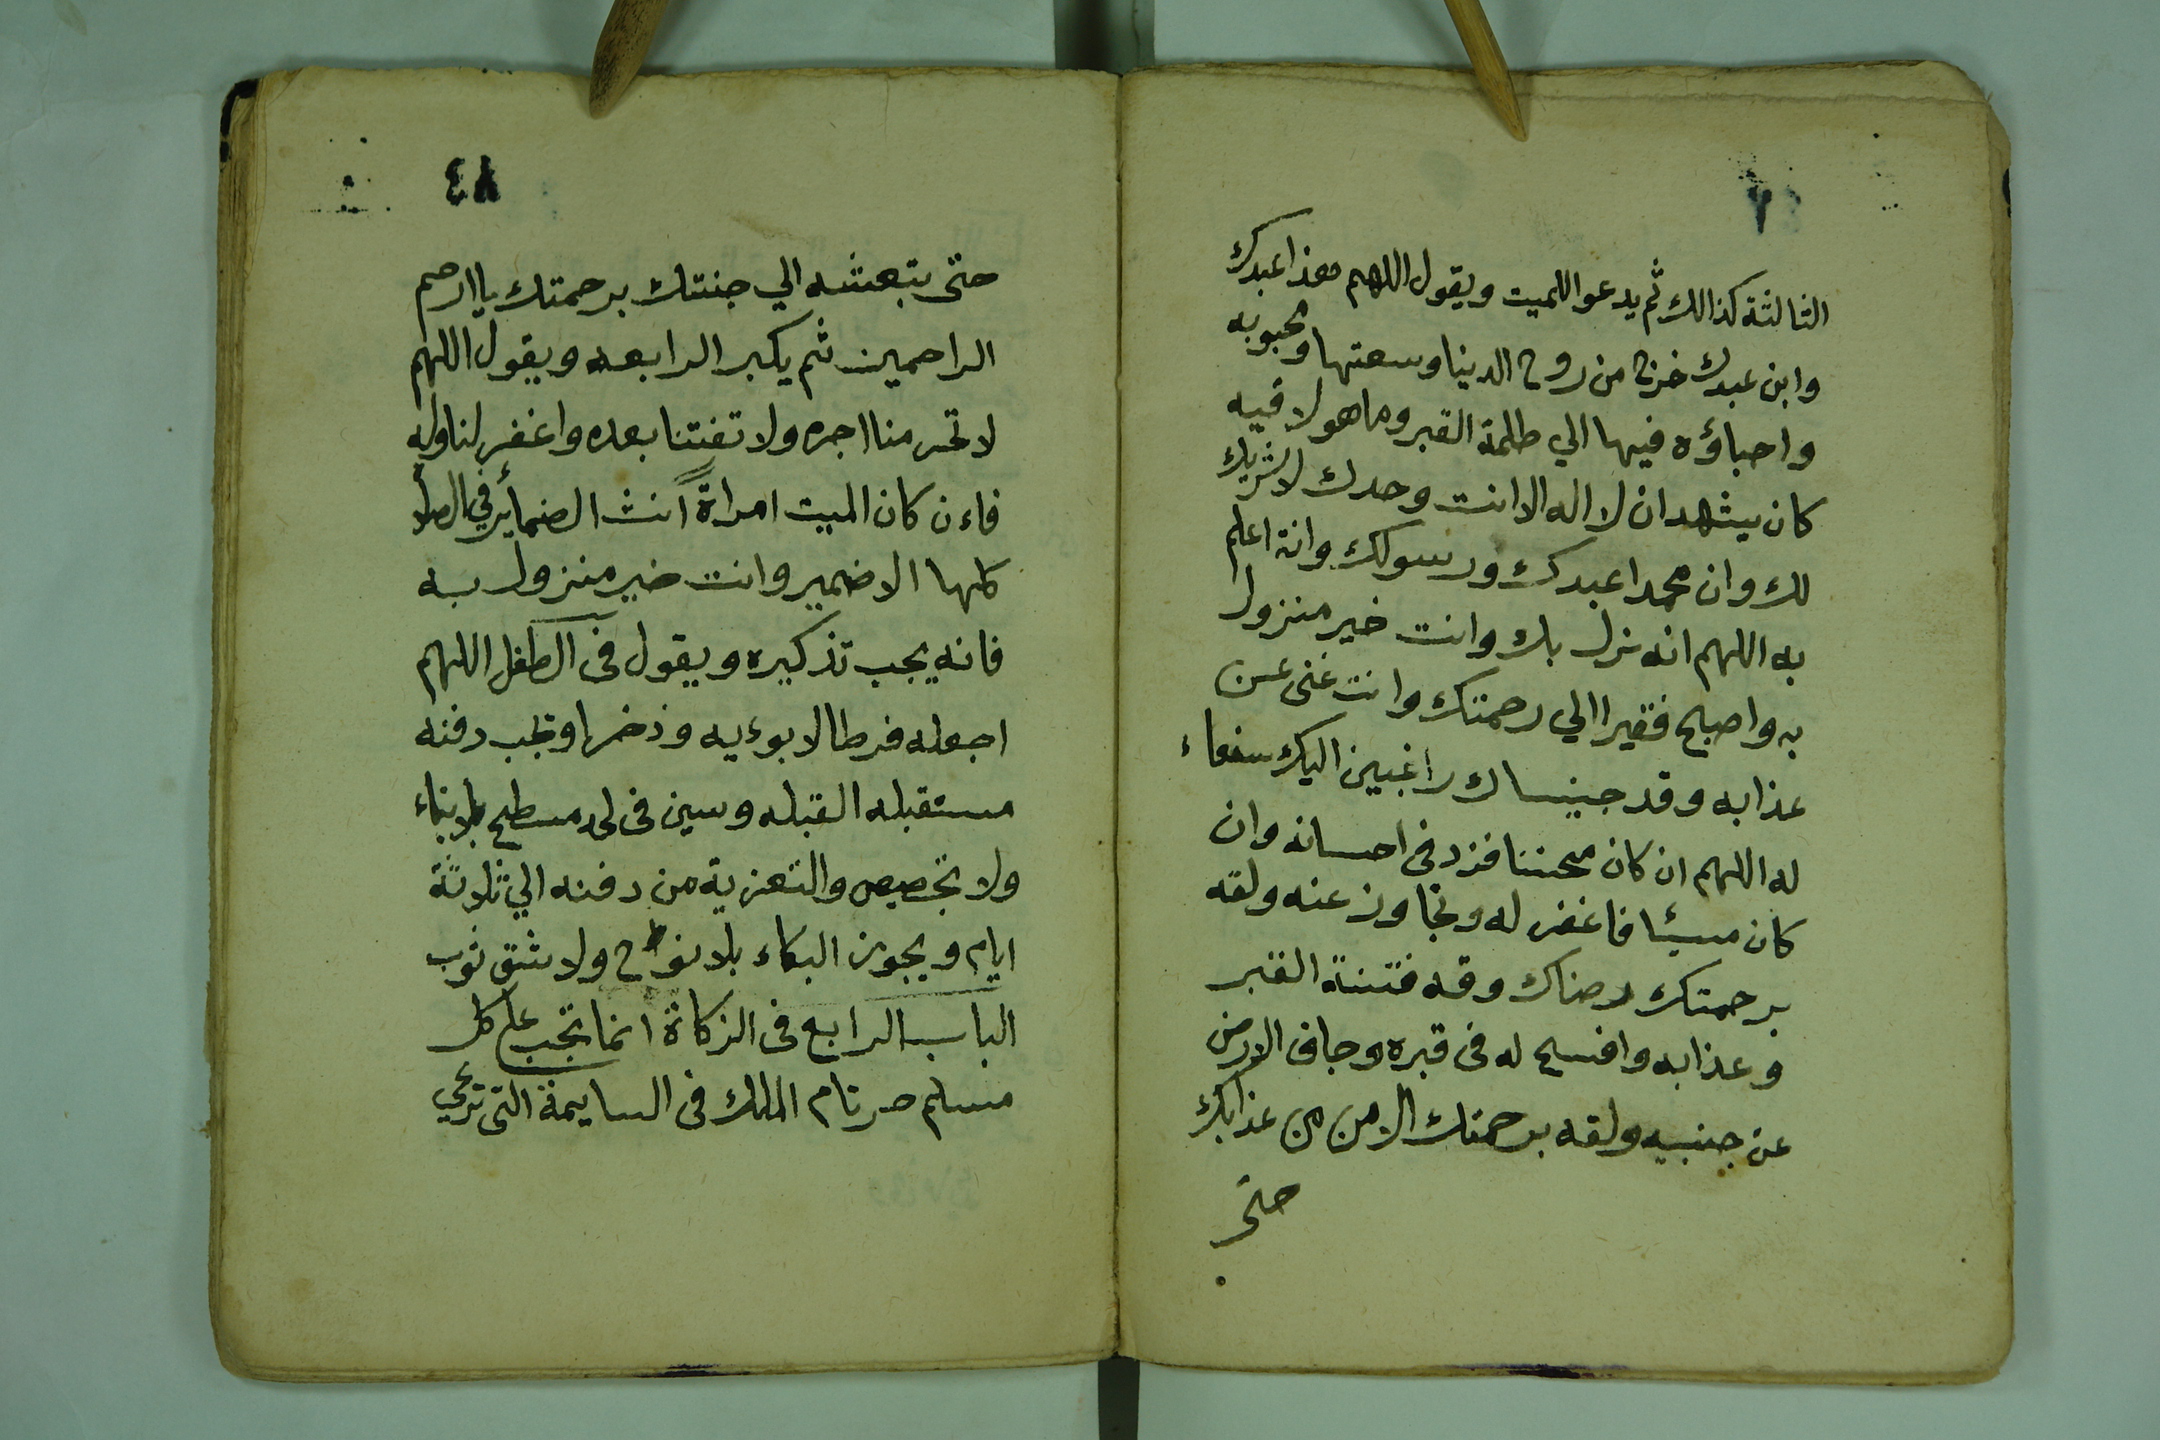 الثالثة كذالك ثم يدعوا للميت ويقول اللهم هذا عبدك
وابن عبدك خرج من روح الدينا وسعتها ومحبوبه
واحباؤه فيها الي ظلمة القبر وما هو لاقيه
كان يشهد ان لا اله الا انت وحدك لا شريك
لك وان محمدا عبدك ورسولك وانت اعلم
به اللهم انه نزل بك وانت خير منزول
به واصبح فقيرا الي رحمتك وانت غنى عن
عذابه وقد جيناك راغبين اليك شفعاء
له اللهم ان كان محسنا فزد فى احسانه وان
كان مسيئا فاغفر له وتجاوز عنه ولقه
برحمتك رضاك وقه فتنة القبر
وعذابه وافسح له فى قبره وجاف الارض
عن جنبيه ولقه برحمتك الامن من عذابك
حتى
٤٨
حتى تبعثه الي جنتك برحمتك ياارحم
الراحمين ثم يكبر الرابعه ويقول اللهم
لا تحرمنا اجره ولا تفتنا بعده واغفر لنا وله
فاءن كان الميت امراة انث الضمائر في
كلها الا ضمير وانت خير منزول به
فانه يجب تذكيره ويقول فى الطفل اللهم
اجعله فرطا لابوءيه وذخرا وتجب دفنه
مستقبله القبله وسين فى لحد مسطح بلا بناء
ولا تخصيص والتعزية من دفنه الي ثلاثة
ايام ويجوز البكاء بلا نوح ولا شق ثوب
الباب الرابع فى الزكاة انما تجب على كل
مسلم حر تام الملك فى السايمة التى ترعي